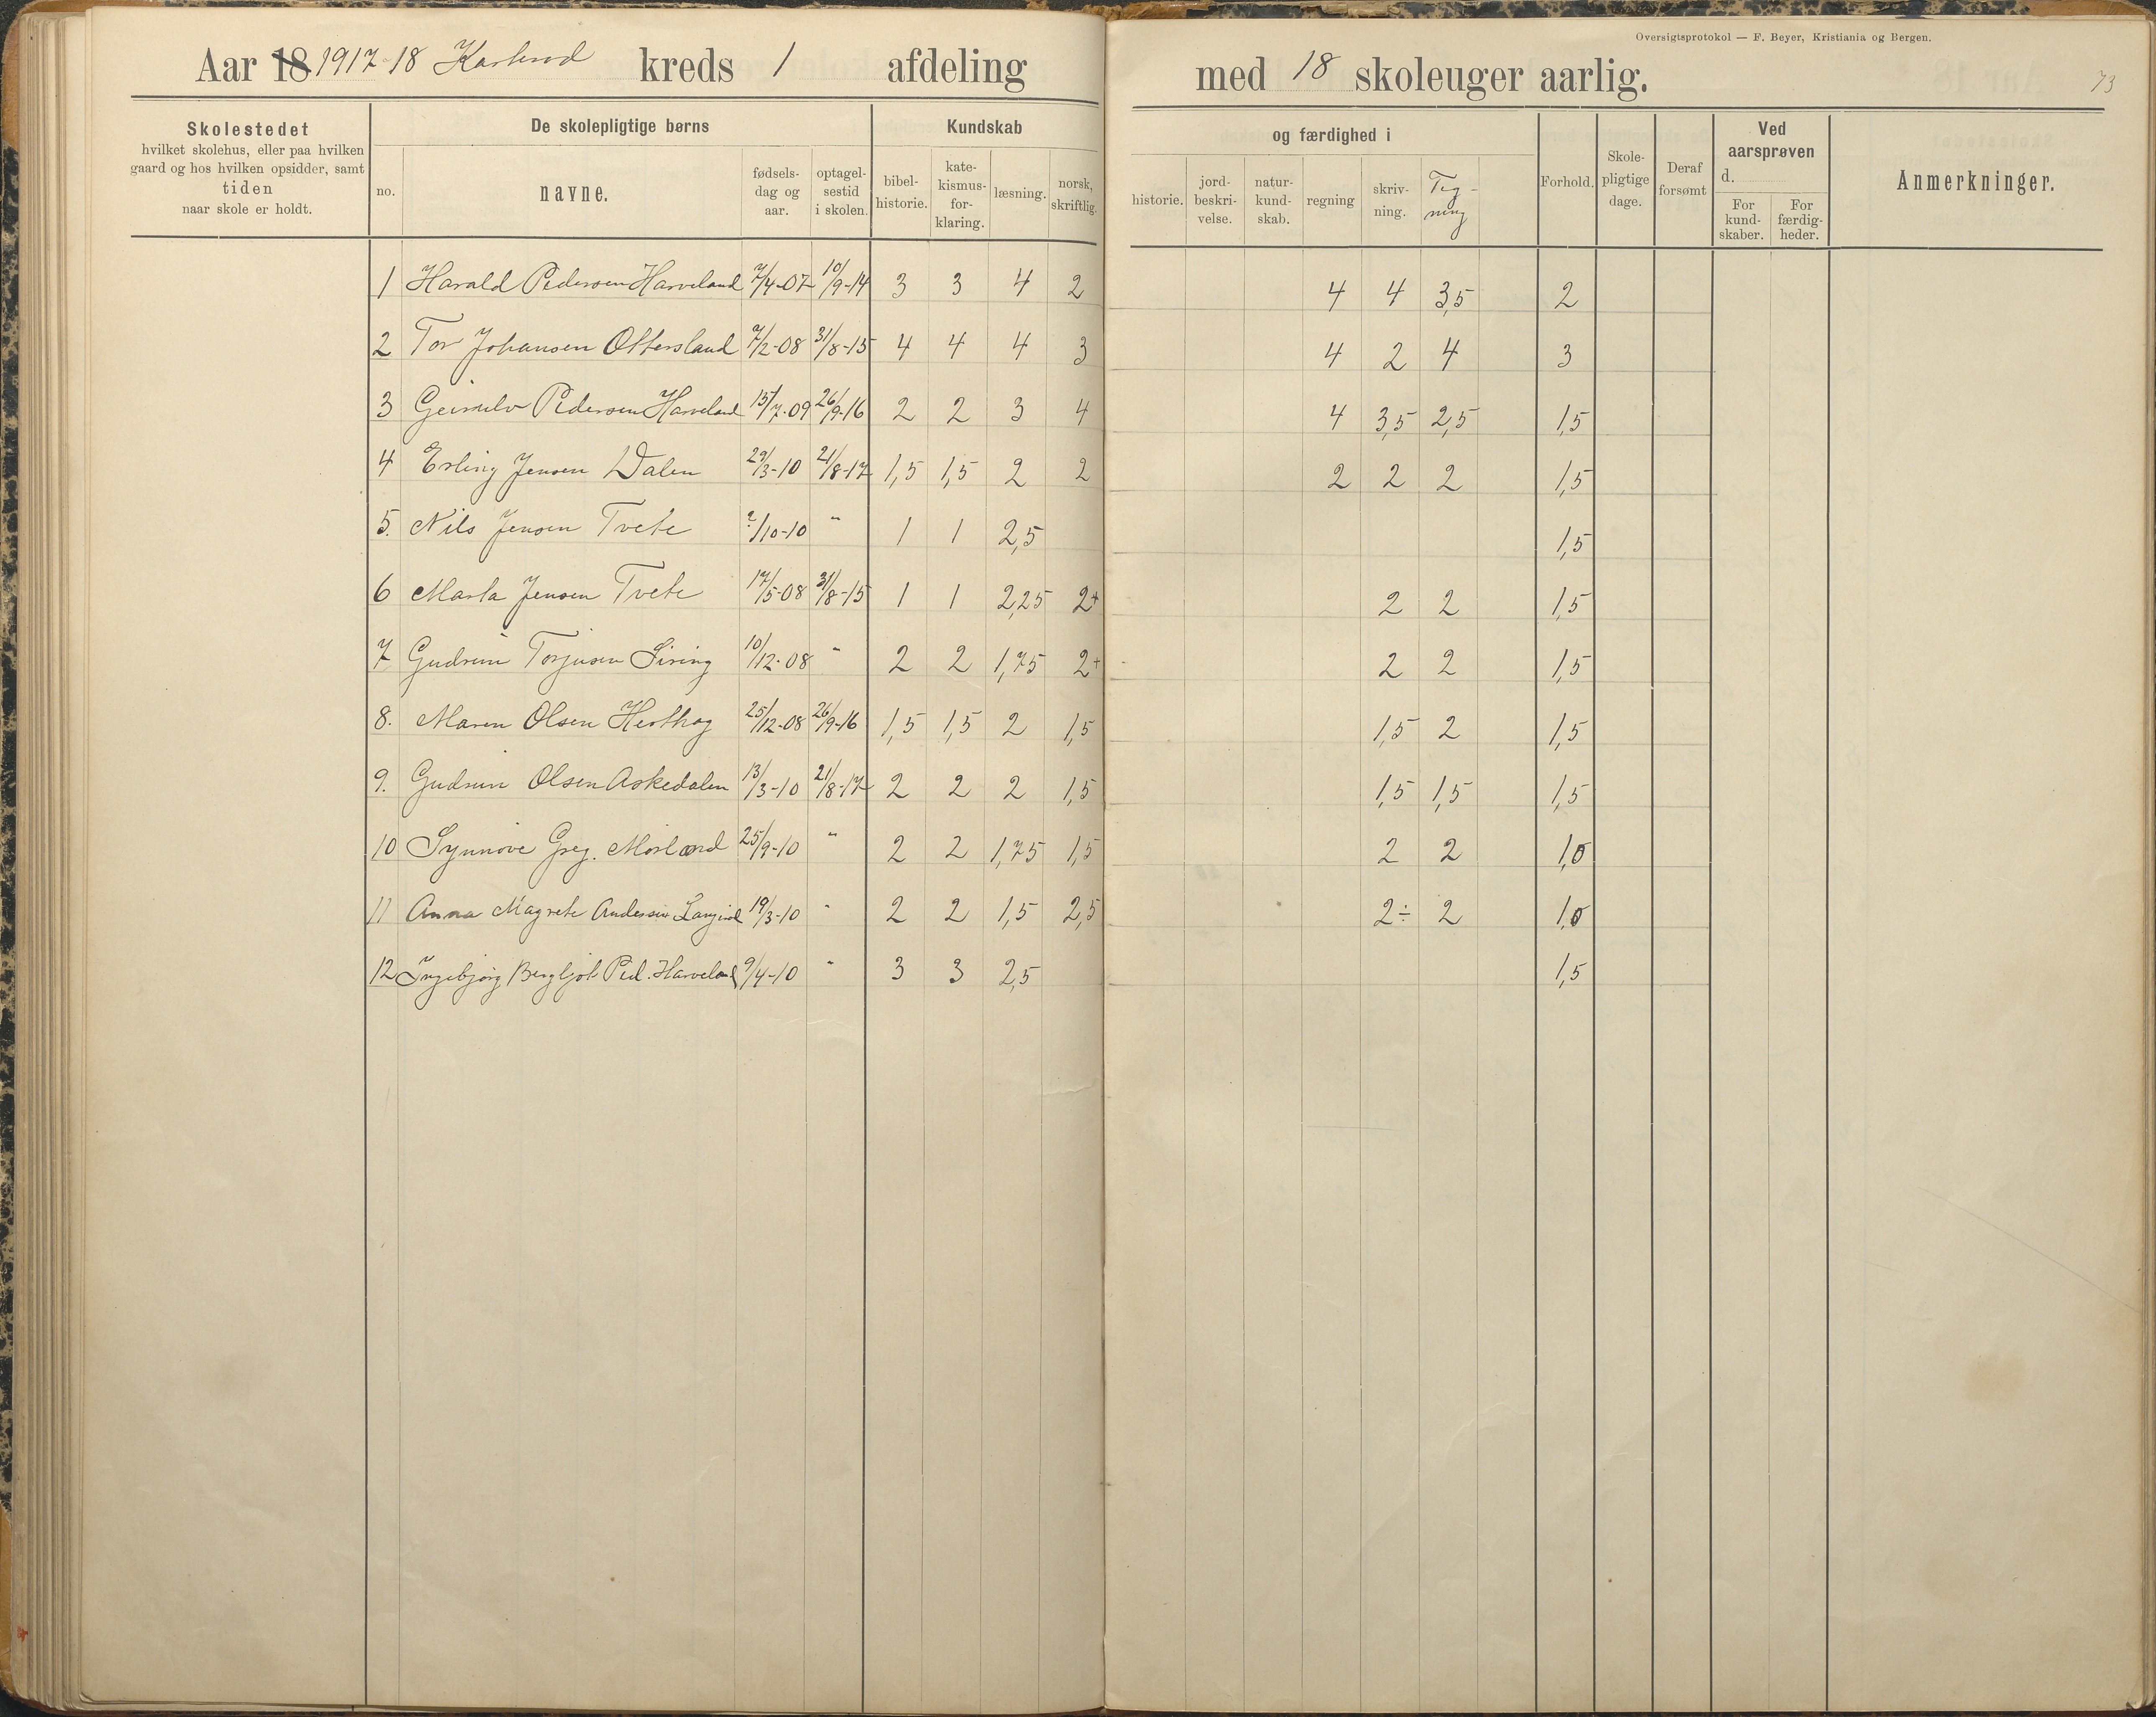 Oversigtsprotokol — F. Beyer, Kristiania og Bergen.
Aar 18 1917-18 Karlsrod kreds 1 afdeling med 18 skoleuger aarlig. 73
Skolestedet
hvilket skolehus, eller paa hvilken
gaard og hos hvilken opsidder, samt
tiden
naar skole er holdt.
De skolepligtige børns
no.
navne.
fødsels-
dag og
aar.
optagel-
sestid
i skolen.
Kundskab
bibel-
historie.
kate-
kismus-
for-
klaring.
læsning.
norsk,
skriftlig.
og færdighed i
historie.
jord-
beskri-
velse.
natur-
kund-
skab.
regning
skriv-
ning.
Teg-
ning
Forhold.
Skole-
pligtige
dage.
Deraf
forsømt
Ved
aarsprøven
d.
For
kund-
skaber.
For
færdig-
heder.
Anmerkninger.
1 Harald Pedersen Harveland 7/4-07 10/9-14 3 3 4 2 4 4 3,5 2
2 Tor Johansen Ottersland 7/2-08 31/8-15 4 4 4 3 4 2 4 3
3 Pedersen Harveland 15/7-09 26/9-16 2 2 3 4 4 3,5 2,5 1,5
4 Erling Jensen Dalen 29/3-10 21/8-17 1,5 1,5 2 2 2 2 2 1,5
5. Nils Jensen Tvete 2/10-10 " 1 1 2,5 1,5
6 Marta Jensen Tvete 17/5-08 31/8-15 1 1 2,25 2+ 2 2 1,5
7 Gudrun Torjusen Siring 10/12-08 " 2 2 1,75 2+ 2 2 1,5
8. Maren Olsen Hesthag 25/12-08 26/9-16 1,5 1,5 2 1,5 1,5 2 1,5
9. Gudrun Olsen Askedalen 13/3-10 21/8-17 2 2 2 1,5 1,5 1,5 1,5
10 Synnøve Greg. Morland 25/9-10 " 2 2 1,75 1,5 2 2 1,0
11 Anna Magrete Andersen 19/3-10 " 2 2 1,5 2,5 2÷ 2 1,0
12 Ingebjørg Bergljot Ped. Harveland 9/4-10 " 3 3 2,5 1,5